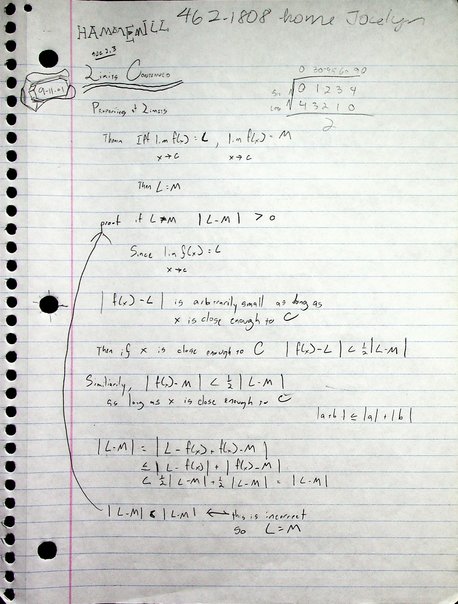 462-1808 home Jocelyn
HAMMERMILL
sec 2.3
0 30 45 60 90
9-11-01
Limits Continued
Sin 0 1 2 3 4
cos 4 3 2 1 0
2
Properties of Limits
Thm If lim f(x) = L, lim f(x) = M
x→c x→c
Then L=M
proof if L≠M |L-M| > 0
Since lim f(x) = L
x→c
|f(x)-L| is arbitrarily small as long as
x is close enough to C
Then if x is close enough to C |f(x)-L| < ½|L-M|
Similarily, |f(x)-M| < ½|L-M|
as long as x is close enough to C
|a+b| ≤ |a|+|b|
|L-M| = |L-f(x)+f(x)-M|
≤ |L-f(x)| + |f(x)-M|
< ½|L-M| + ½|L-M| = |L-M|
|L-M| < |L-M| ↔ this is incorrect
so L=M